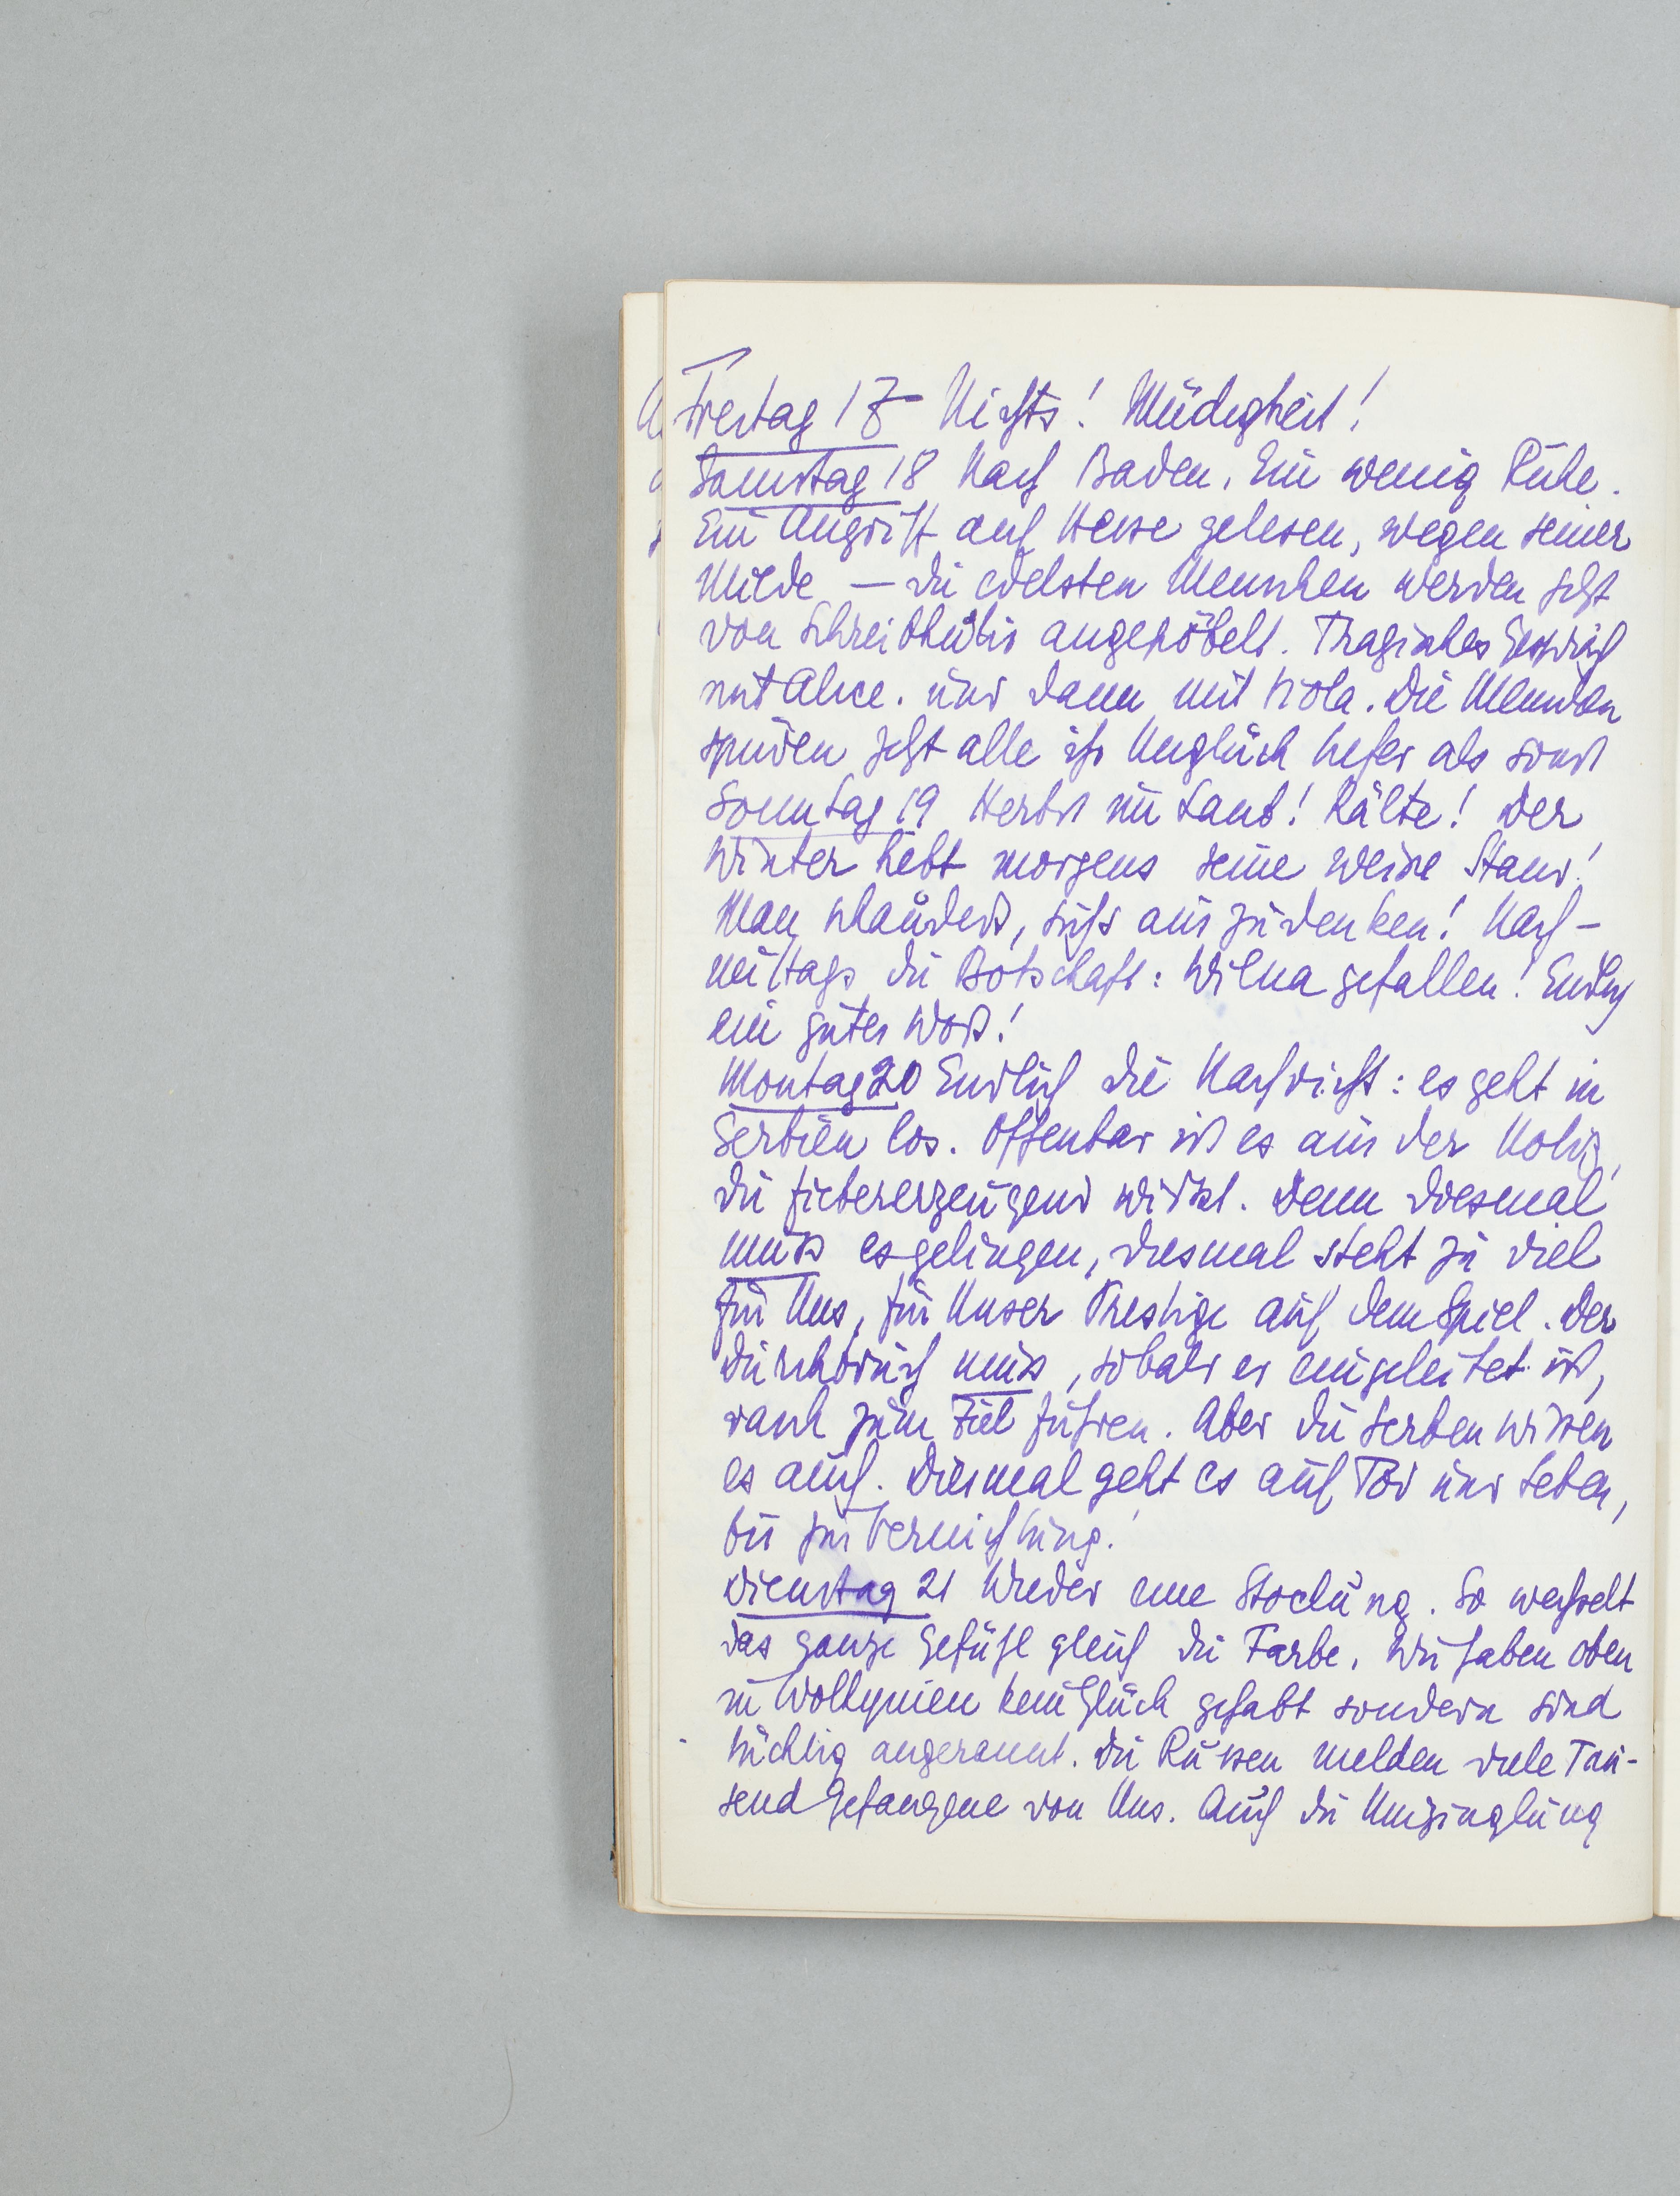 Freitag 17 Nichts! Müdigkeit!
Samstag 18 Nach Baden. Ein wenig Ruhe.
Ein Angriff auf Hesse gelesen, wegen seiner
Milde — die edelsten Menschen werden jetzt
von angepöbelt. Tragisches Gespräch
mit Alice. und dann mit Viola. Die Menschen
spüren jetzt alle ihr Unglück tiefer als sonst
Sonntag 19 Herbst im Land! Kälte! Der
Winter hebt morgens seine weisse Hand!
Man schaudert, sichs auszudenken! Nach-
mittags die Botschaft: Wilna gefallen! Endlich
ein gutes Wort!
Montag 20 Endlich die Nachricht: es geht in
Serbien los. Offenbar ist es aus der Notiz,
die fiebererzeugend wirkt. Denn diesmal
muss es gelingen, diesmal steht zu viel
für Uns, für Unser Prestige auf dem Spiel. Der
Durchbruch muss, sobald er eingeleitet ist,
rasch zum Ziel führen. Aber die Serben wissen
es auch. Diesmal geht es auf Tod und Leben,
bis zur Vernichtung!
Dienstag 21 Wieder eine Stockung. So wechselt
das ganze Gefühl gleich die Farbe. Wir haben oben
in Wolhynien kein Glück gehabt sondern sind
tüchtig angerannt. Die Russen melden viele Tau-
send Gefangene von Uns. Auch die Umzinglung